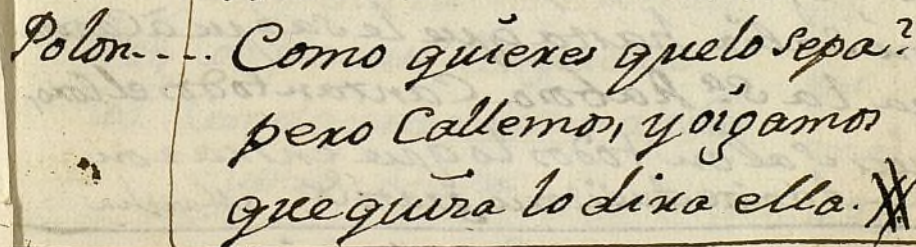 Polon.... Como quieres quelo sepa?
pero Callemos, y oigamos
que quiza lo dira ella.